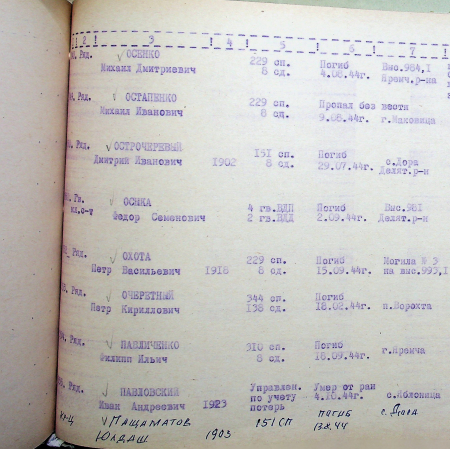 ! 2 ! 3 ! 4 ! 5 ! 6 ! 7 !
Ряд. ОСЕНКО 229 сп. Погиб Выс.984,1
Михаил Дмитриевич 8 сд. 4.08.44г.
Ряд. ОСТАПЕНКО 229 сп. Пропал без вести
Михаил Иванович 8 сд. 9.08.44г.
Ряд. ОСТРОЧЕРЕВЫЙ 151 сп. Погиб с.Дора
Дмитрий Иванович 1902 8 сд. 29.07.44г. Делят.р-н
Гв. ОСЫКА 4 гв.ВДП Погиб Выс.981
мл.с-т Федор Семенович 2 гв.ВДД 2.09.44г. Делят.р-н
Ряд. ОХОТА 229 сп. Погиб Могила № 3
Петр Васильевич 1918 8 сд. 15.09.44г. на выс.993,1
Ряд. ОЧЕРЕТНЫЙ 344 сп. Погиб
Петр Кириллович 138 сд. 18.02.44г. п.Ворохта
Ряд. ПАВЛИЧЕНКО 310 сп. Погиб
Филипп Ильич 8 сд. 18.09.44г. г.Яремча
Ряд. ПАВЛОВСКИЙ Управлен. Умер от ран
Иван Андреевич 1923 по учету 4.10.44г. с.Яблоница
потерь
кр-ц ПАЩАМАТОВ 151 СП ПОГИБ с.Дора
ЮЛДАШ 1903